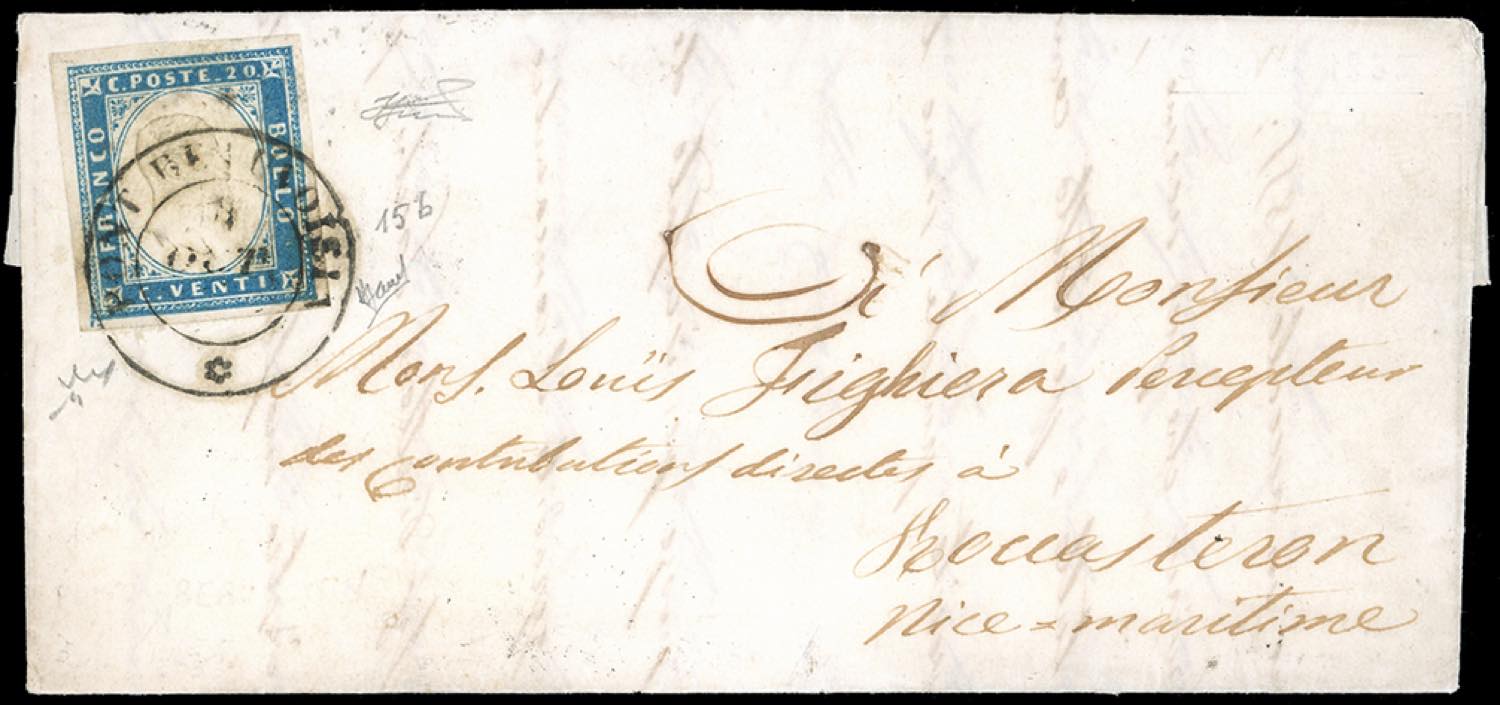 C. POSTE. 20.
FRANCO
BOLLO
C. VENTI
PONT BEAUVOISIN
8
OTT
15 b
A Monsieur
Mons. Louïs Fighiera Percepteur
des Contributions directes à
Rocasteron
Nice=maritime